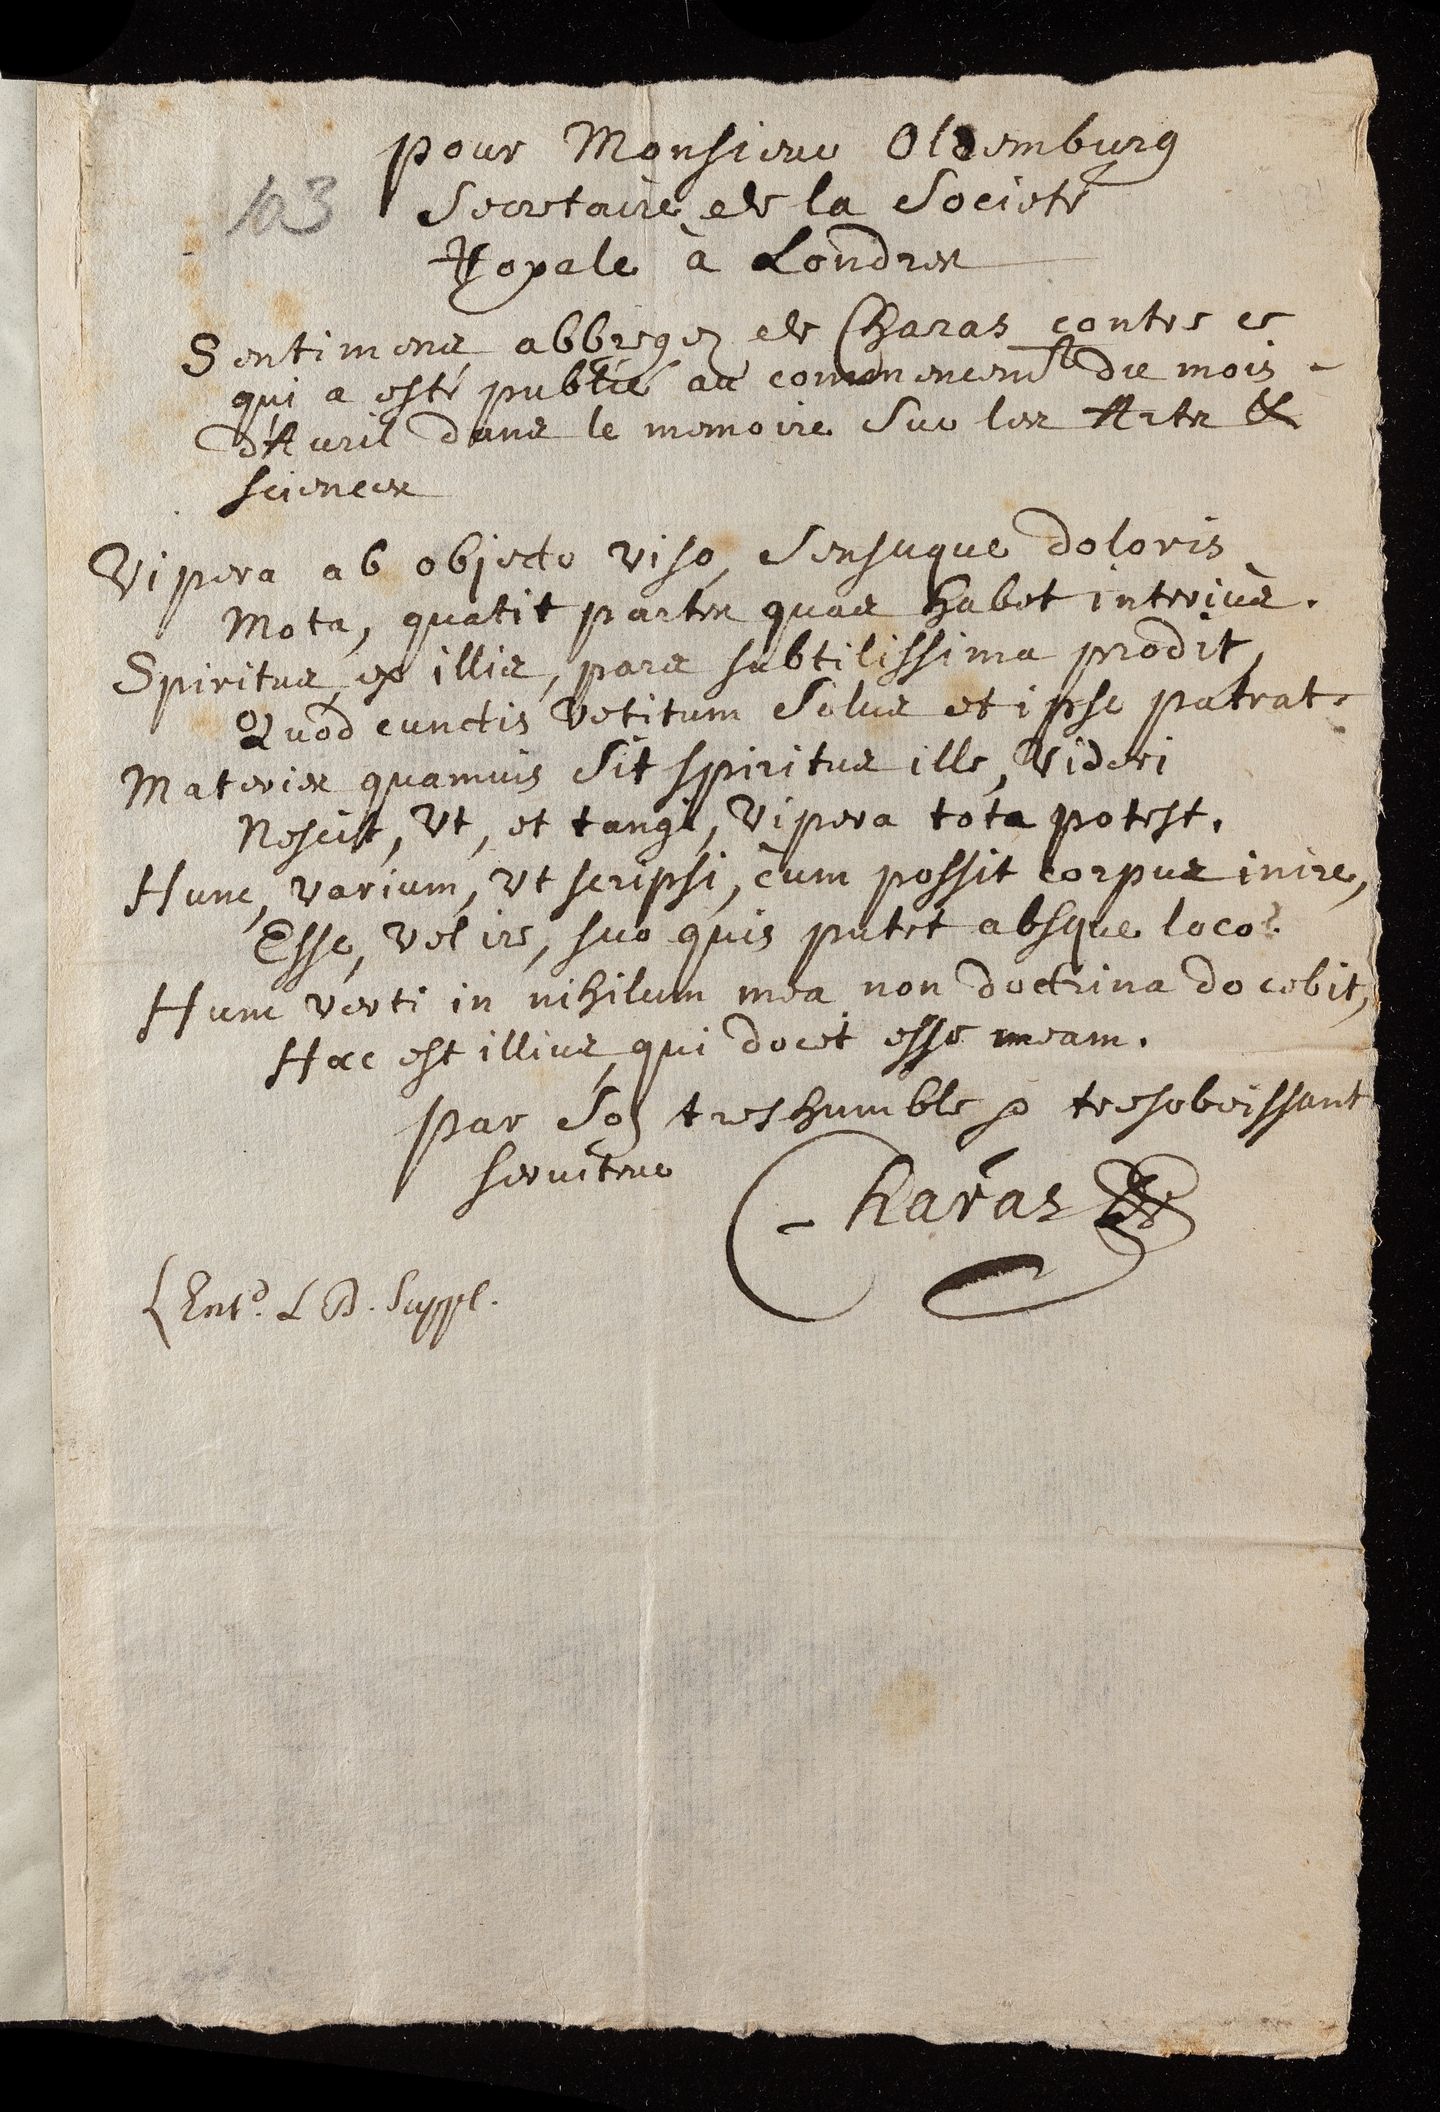 pour Monsieur Oldemburg
103
Secretaire de la Societé
Royale à Londres
Sentimens abbregez de Charas contre ce
qui a esté publié au commencemt du mois
d'Auril dans le memoire Sur les Arts &
sciences
Vipera ab objecto viso, Sensuque doloris
Mota, quatit partes quas habet interiùs.
Spiritus ex illis, pars subtilissima prodit,
Quod cunctis Vetitum Solus et ipse patrat.
Materies quamuis Sit spiritus ille, Videri
Nescit, Vt, et tangi, Vipera tota potest.
Hunc, varium, Vt scripsi, cùm possit corpus inire,
Esse, vel ire, suo quis putet absque loco?
Hunc verti in nihilum mea non doctrina docebit,
Hæc est illius, qui docet esse meam.
par Son treshumble & tresobeissant
seruiteur
Charas
{Entd. L B. Suppl.